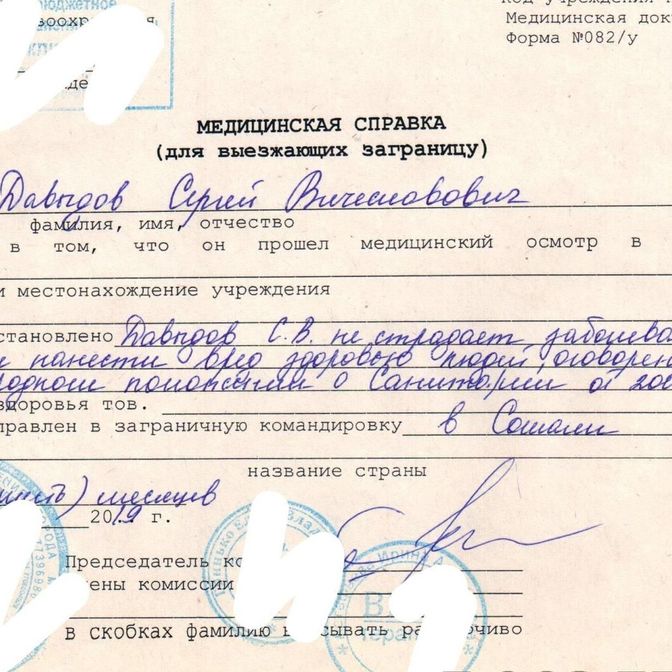 бюджетное
Медицинская док
Форма №082/у
МЕДИЦИНСКАЯ СПРАВКА
(для выезжающих заграницу)
Давыдов Сергей Вичеславович
фамилия, имя, отчество
в том, что он прошел медицинский осмотр в
и местонахождение учреждения
становлено Давыдов С.В. не страдает заболева
нанести вред здоровью людей, оговорен
родном положении о Санитарии от 200
здоровья тов.
правлен в заграничную командировку в Сомали
название страны
) месяцев
2019 г.
Председатель ко
лены комиссии
в скобках фамилию в сывать ра чиво